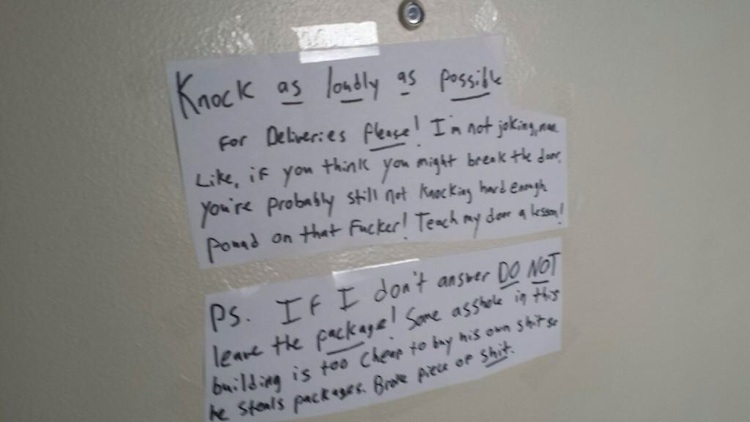 Knock as loudly as possible
for Deliveries please! I'm not joking, man.
Like, if you think you might break the door,
you're probably still not knocking hard enough
pound on that Fucker! Teach my door a lesson!
Ps. If I don't answer DO NOT
leave the package! Some asshole in this
building is too cheap to buy his own shit so
he steals packages. Broke piece of shit.